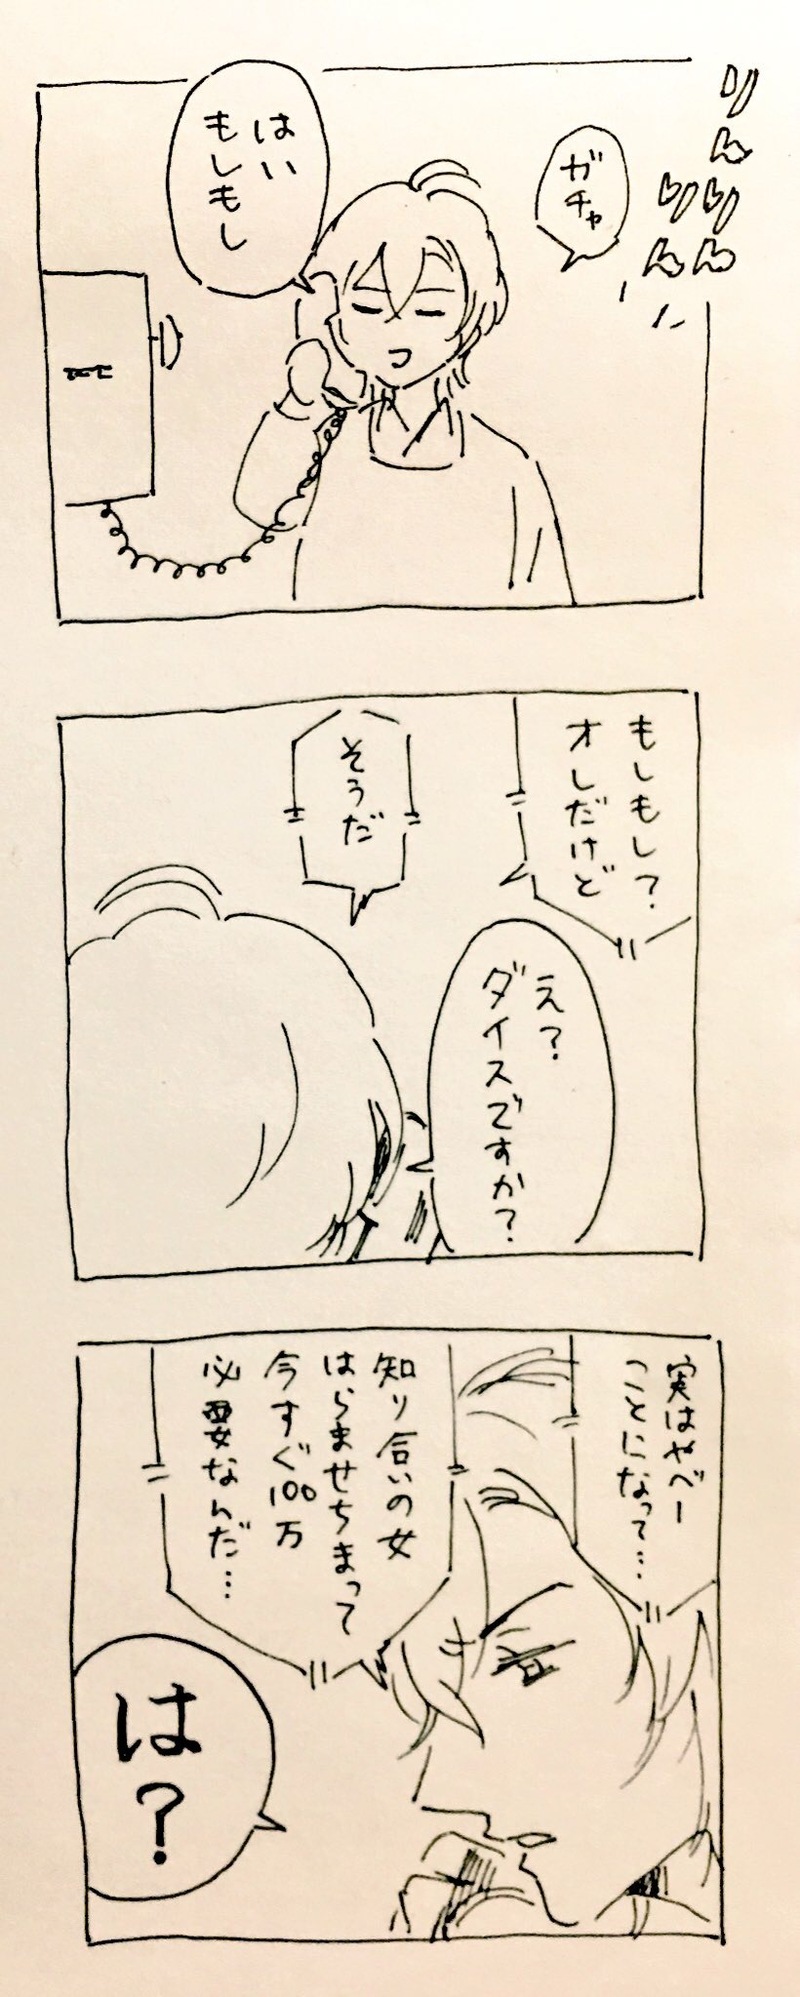 りん
りん
りん
ガチャ
はい
もしもし
もしもし？
オレだけど
え？
ダイスですか？
そうだ
実はやべー
ことになって…
知り合いの女
はらませちまって
今すぐ100万
必要なんだ…
は？